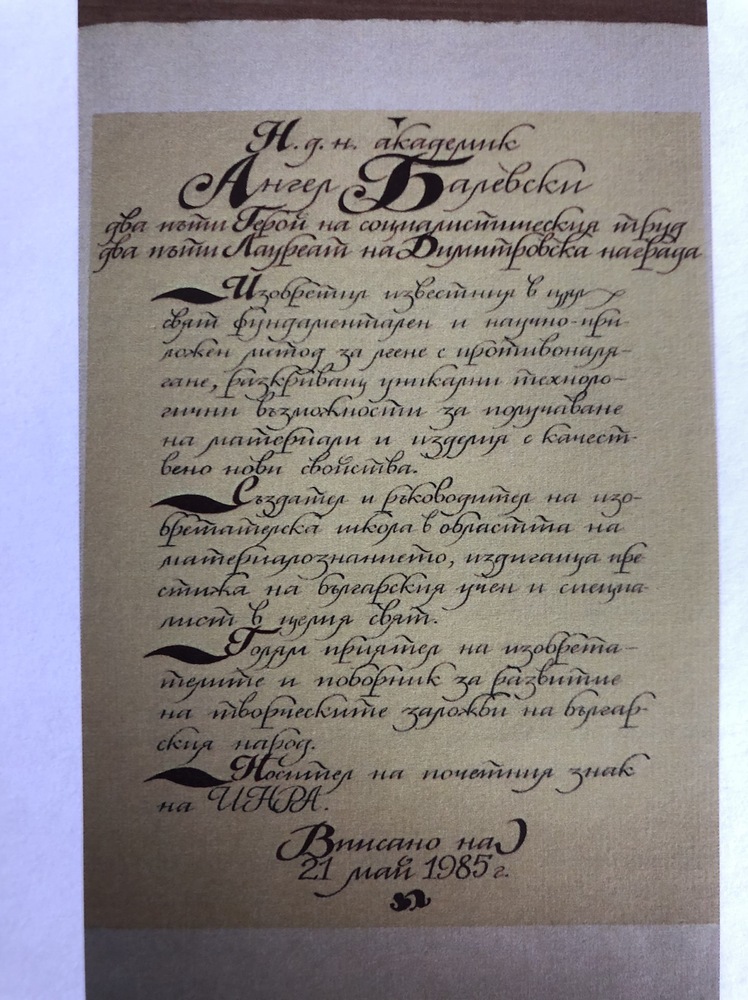 Н. д. н. академик
Ангел Балевски
два пъти Герой на социалистическия труд
два пъти Лауреат на Димитровска награда
Изобретил известния в цял
свят фундаментален и научно-при-
ложен метод за леене с противоналя-
гане, разкриващ уникални техноло-
гични възможности за получаване
на материали и изделия с качест-
вено нови свойства.
Създател и ръководител на изо-
бретателска школа в областта на
материалознанието, издигаща пре
стижа на българския учен и специа-
лист в целия свят.
Голям приятел на изобрета-
телите и поборник за развитие
на творческите заложби на българ-
ския народ.
Носител на почетния знак
на ИНРА.
Вписано на
21 май 1985 г.